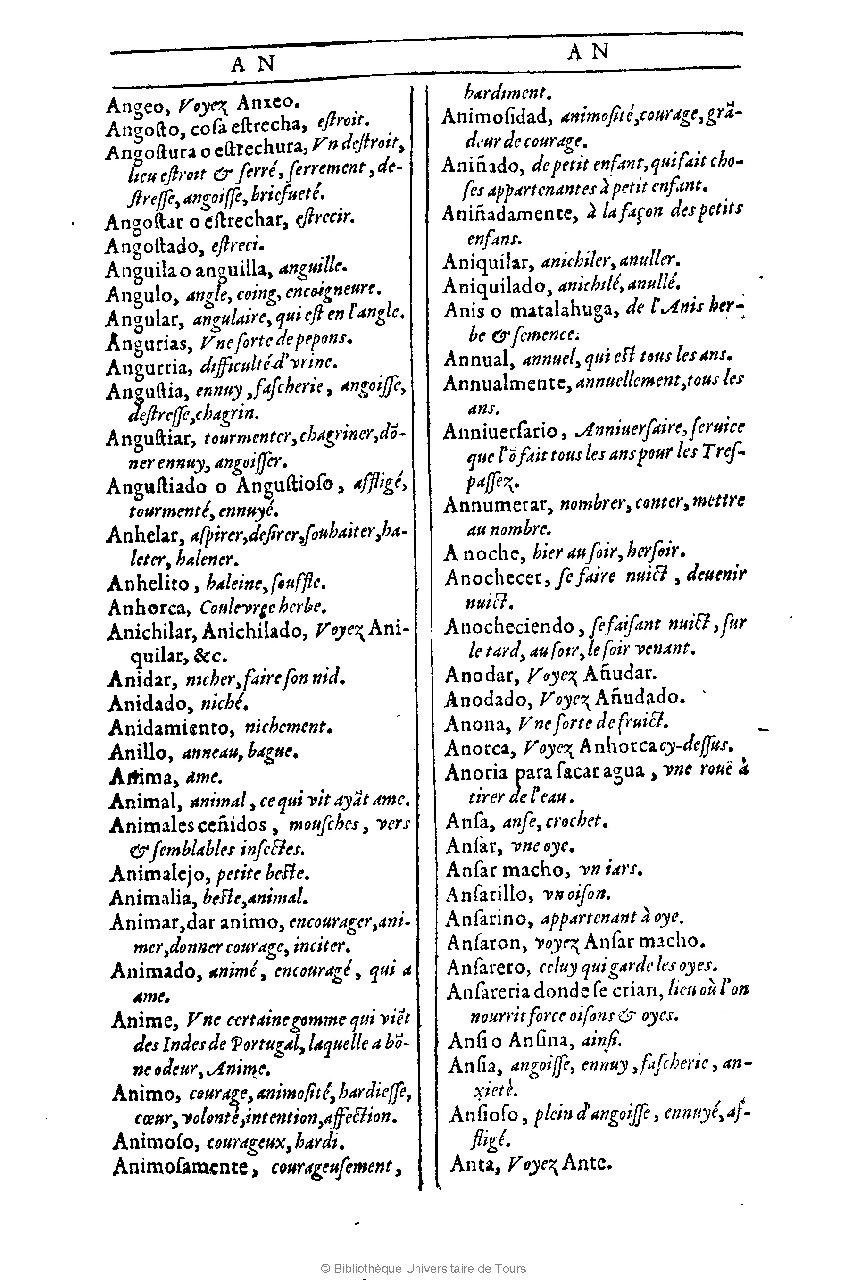 A N
Angeo, Voyez Anxeo.
Angoſto, coſa eſtrecha, eſtroit.
Angoſtura o eſtrechura, Vn deſtroit,
lieu eſtroit & ſerré, ſerrement, de-
ſtreſſe, angoiſſe, briefueté.
Angoſtar o eſtrechar, eſtrecir.
Angoſtado, eſtreci.
Anguila o anguilla, anguille.
Angulo, angle, coing, encoigneure.
Angular, angulaire, qui eſt en l'angle.
Angurias, Vne ſorte de pepons.
Angurria, difficulté d'vrine.
Anguſtia, ennuy, faſcherie, angoiſſe,
deſtreſſe, chagrin.
Anguſtiar, tourmenter, chagriner, dō-
ner ennuy, angoiſſer.
Anguſtiado o Anguſtioſo, affligé,
tourmenté, ennuyé.
Anhelar, aſpirer, deſirer, ſouhaiter, ha-
leter, halener.
Anhelito, haleine, ſouffle.
Anhorca, Couleurge herbe.
Anichilar, Anichilado, Voyez Ani-
quilar, &c.
Anidar, nicher, faire ſon nid.
Anidado, niché.
Anidamiento, nichement.
Anillo, anneau, bague.
Anima, ame.
Animal, animal, ce qui vit ayāt ame.
Animales ceñidos, mouſches, vers
& ſemblables inſectes.
Animalejo, petite beſte.
Animalia, beſte, animal.
Animar, dar animo, encourager, ani-
mer, donner courage, inciter.
Animado, animé, encouragé, qui a
ame.
Anime, Vne certaine gomme qui viēt
des Indes de Portugal, laquelle a bō-
ne odeur, Anime.
Animo, courage, animoſité, hardieſſe,
cœur, volonté, intention, affection.
Animoſo, courageux, hardi.
Animoſamente, courageuſement,
A N
hardiment.
Animoſidad, animoſité, courage, grā-
deur de courage.
Aniñado, de petit enfant, qui fait cho-
ſes appartenantes à petit enfant.
Aniñadamente, à la façon des petits
enfans.
Aniquilar, anichiler, anuller.
Aniquilado, anichilé, anullé.
Anis o matalahuga, de l'Anis her-
be & ſemence.
Annual, annuel, qui eſt tous les ans.
Annualmente, annuellement, tous les
ans.
Anniuerſario, Anniuerſaire, ſeruice
que l'ō fait tous les ans pour les Treſ-
paſſez.
Annumerar, nombrer, conter, mettre
au nombre.
A noche, hier au ſoir, herſoir.
Anochecer, ſe faire nuict, deuenir
nuict.
Anocheciendo, ſe faiſant nuict, ſur
le tard, au ſoir, le ſoir venant.
Anodar, Voyez Añudar.
Anodado, Voyez Añudado.
Anona, Vne ſorte de fruict.
Anorca, Voyez Anhorca cy-deſſus.
Anoria para ſacar agua, vne rouë à
tirer de l'eau.
Anſa, anſe, crochet.
Anſar, vne oye.
Anſar macho, vn iars.
Anſarillo, vn oiſon.
Anſarino, appartenant à oye.
Anſaron, voyez Anſar macho.
Anſarero, celuy qui garde les oyes.
Anſareria donde ſe crian, lieu où l'on
nourrit force oiſons & oyes.
Anſi o Anſina, ainſi.
Anſia, angoiſſe, ennuy, faſcherie, an-
xieté.
Anſioſo, plein d'angoiſſe, ennuyé, af-
fligé.
Anta, Voyez Ante.
© Bibliothèque Universitaire de Tours